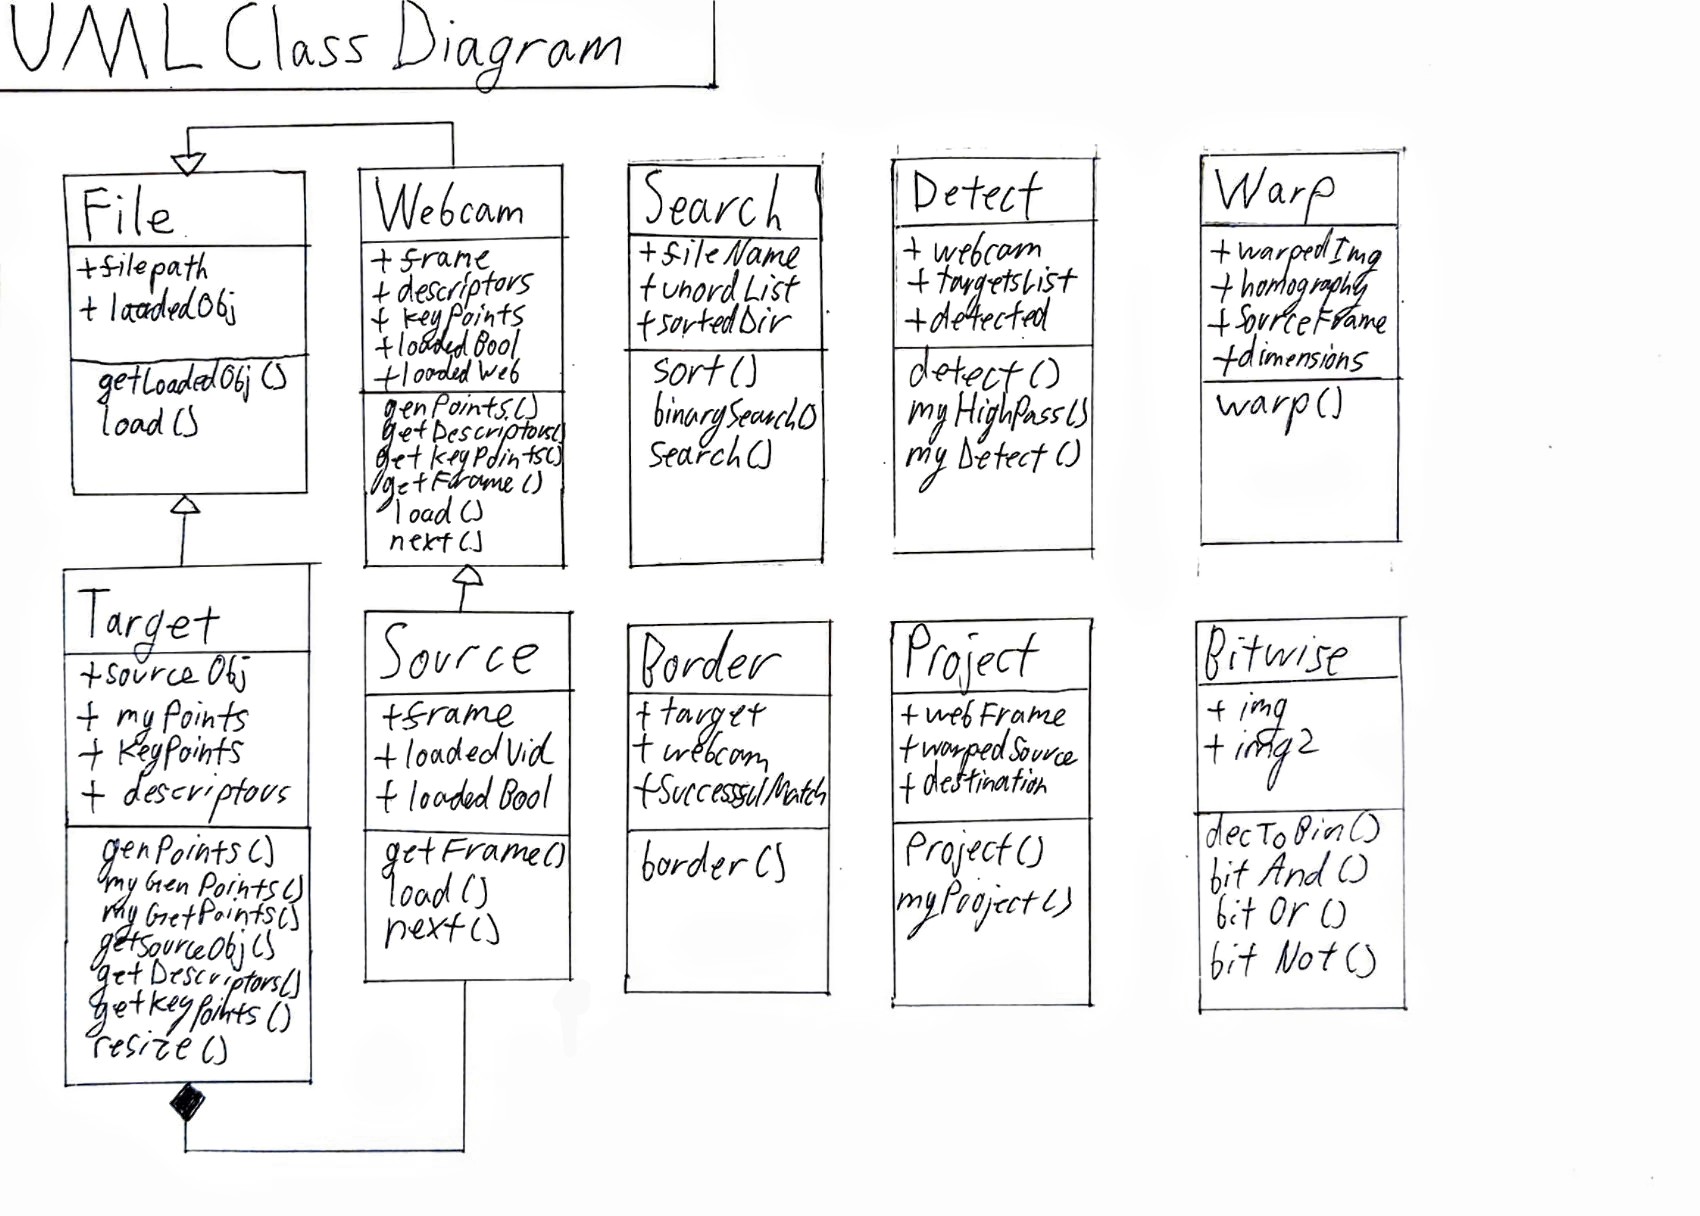 UML Class Diagram
File
+filepath
+ loadedObj
getLoadedObj()
load()
Webcam
+ frame
+ descriptors
+ keyPoints
+loadedBool
+loadedWeb
genPoints()
getDescriptors()
getKeyPoints()
getFrame()
load()
next()
Search
+fileName
+unordList
+sortedDir
sort()
binarySearch()
search()
Detect
+ webcam
+ targetsList
+detected
detect()
myHighPass()
myDetect()
Warp
+warpedImg
+homography
+SourceFrame
+dimensions
warp()
Target
+sourceObj
+ myPoints
+ KeyPoints
+ descriptors
genPoints()
myGenPoints()
myGetPoints()
getSourceObj()
getDescriptors()
getKeyPoints()
resize()
Source
+frame
+loadedVid
+ loadedBool
getFrame()
load()
next()
Border
+ target
+ webcam
+SuccessfulMatch
border()
Project
+webFrame
+warpedSource
+ destination
Project()
myProject()
Bitwise
+ img
+ img2
decToBin()
bit And()
bit Or()
bit Not()